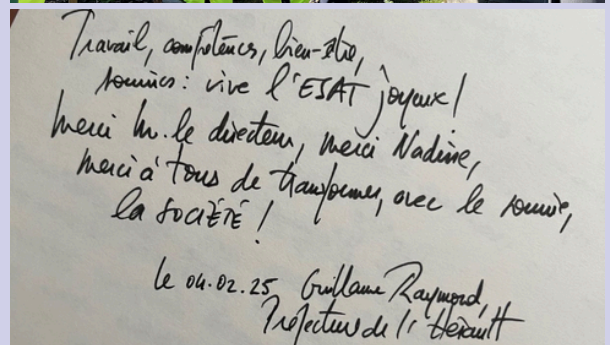 Travail, compétences, bien-être,
sourires : vive l'ESAT joyeux !
Merci M. le directeur, merci Nadine,
merci à tous de transformer, avec le sourire,
la SOCIÉTÉ !
le 04.02.25 Guillaume Raymond,
Préfecture de l'Hérault